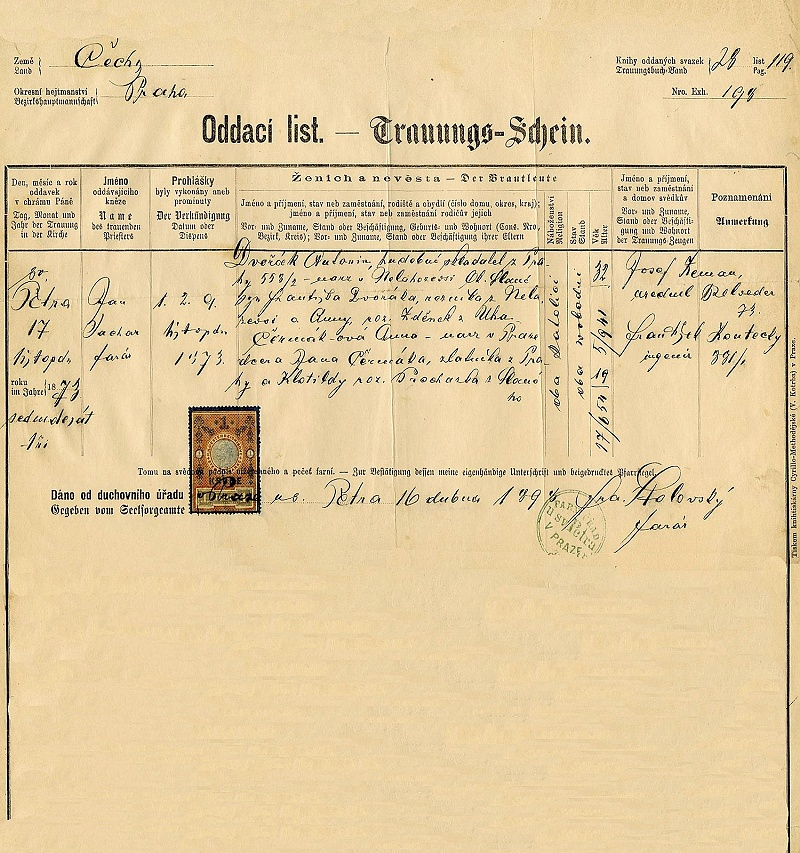 Země
Land
Čechy
Okresní hejtmanství
Bezirkshauptmannschaft
Praha
Knihy oddaných svazek 28 list 119.
Trauungsbuch-Band Pag.
Nro. Exh. 193
Oddací list. — Trauungs-Schein.
Den, měsíc a rok
oddavek
v chrámu Páně
Tag, Monat und
Jahr der Trauung
in der Kirche
Jméno
oddávajícího
kněze
Name
des trauenden
Priesters
Prohlášky
byly vykonány aneb
prominuty
Der Verkündigung
Datum oder
Dispens
Ženich a nevěsta — Der Brautleute
Jméno a příjmení, stav neb zaměstnání, rodiště a obydlí (číslo domu, okres, kraj);
jméno a příjmení, stav neb zaměstnání rodičův jejich
Vor- und Zuname, Stand oder Beschäftigung, Geburts- und Wohnort (Cons. Nro.,
Bezirk, Kreis); Vor- und Zuname, Stand oder Beschäftigung ihrer Eltern
Náboženství
Religion
Stav
Stand
Věk
Alter
Jméno a příjmení,
stav neb zaměstnání
a domov svědkův
Vor- und Zuname,
Stand oder Beschäfti-
gung und Wohnort
der Trauungs-Zeugen
Poznamenání
Anmerkung
sv.
Petra
17
listopdu
roku
im Jahre
1873
sedmdesát
tři
Jan
Fachar
farář
1. 2. 9.
listopdu
1873.
Dvořák Antonín, hudební skladatel z Pra-
hy 553/2 – nar. v Nelahozevsi Ok. Slané
syn Františka Dvořáka, řezníka z Nela
hozevsi a Anny roz. Zděnek z Uha-
Čermák-ová Anna – nar. v Praze
dcera Jana Čermáka, zlatníka z Pra-
hy a Klotildy roz. Procházka z Slané
ho
oba katolíci
oba svobodni
32
5/9 41
19
17/6 54
Josef Zeman,
František Koutecký
Tomu na svědomí podpis můj a pečeť farní. — Zur Bestätigung dessen meine eigenhändige Unterschrift und beigedruckt Pfarrsiegel.
Dáno od duchovního úřadu
Gegeben vom Seelsorgeamte
v Praze u sv. Petra 16 dubna
farář
U SV. PETRA
V PRAZE
Tiskem knihtiskárny Cyrillo-Methodějské (V. Kotrba) v Praze.